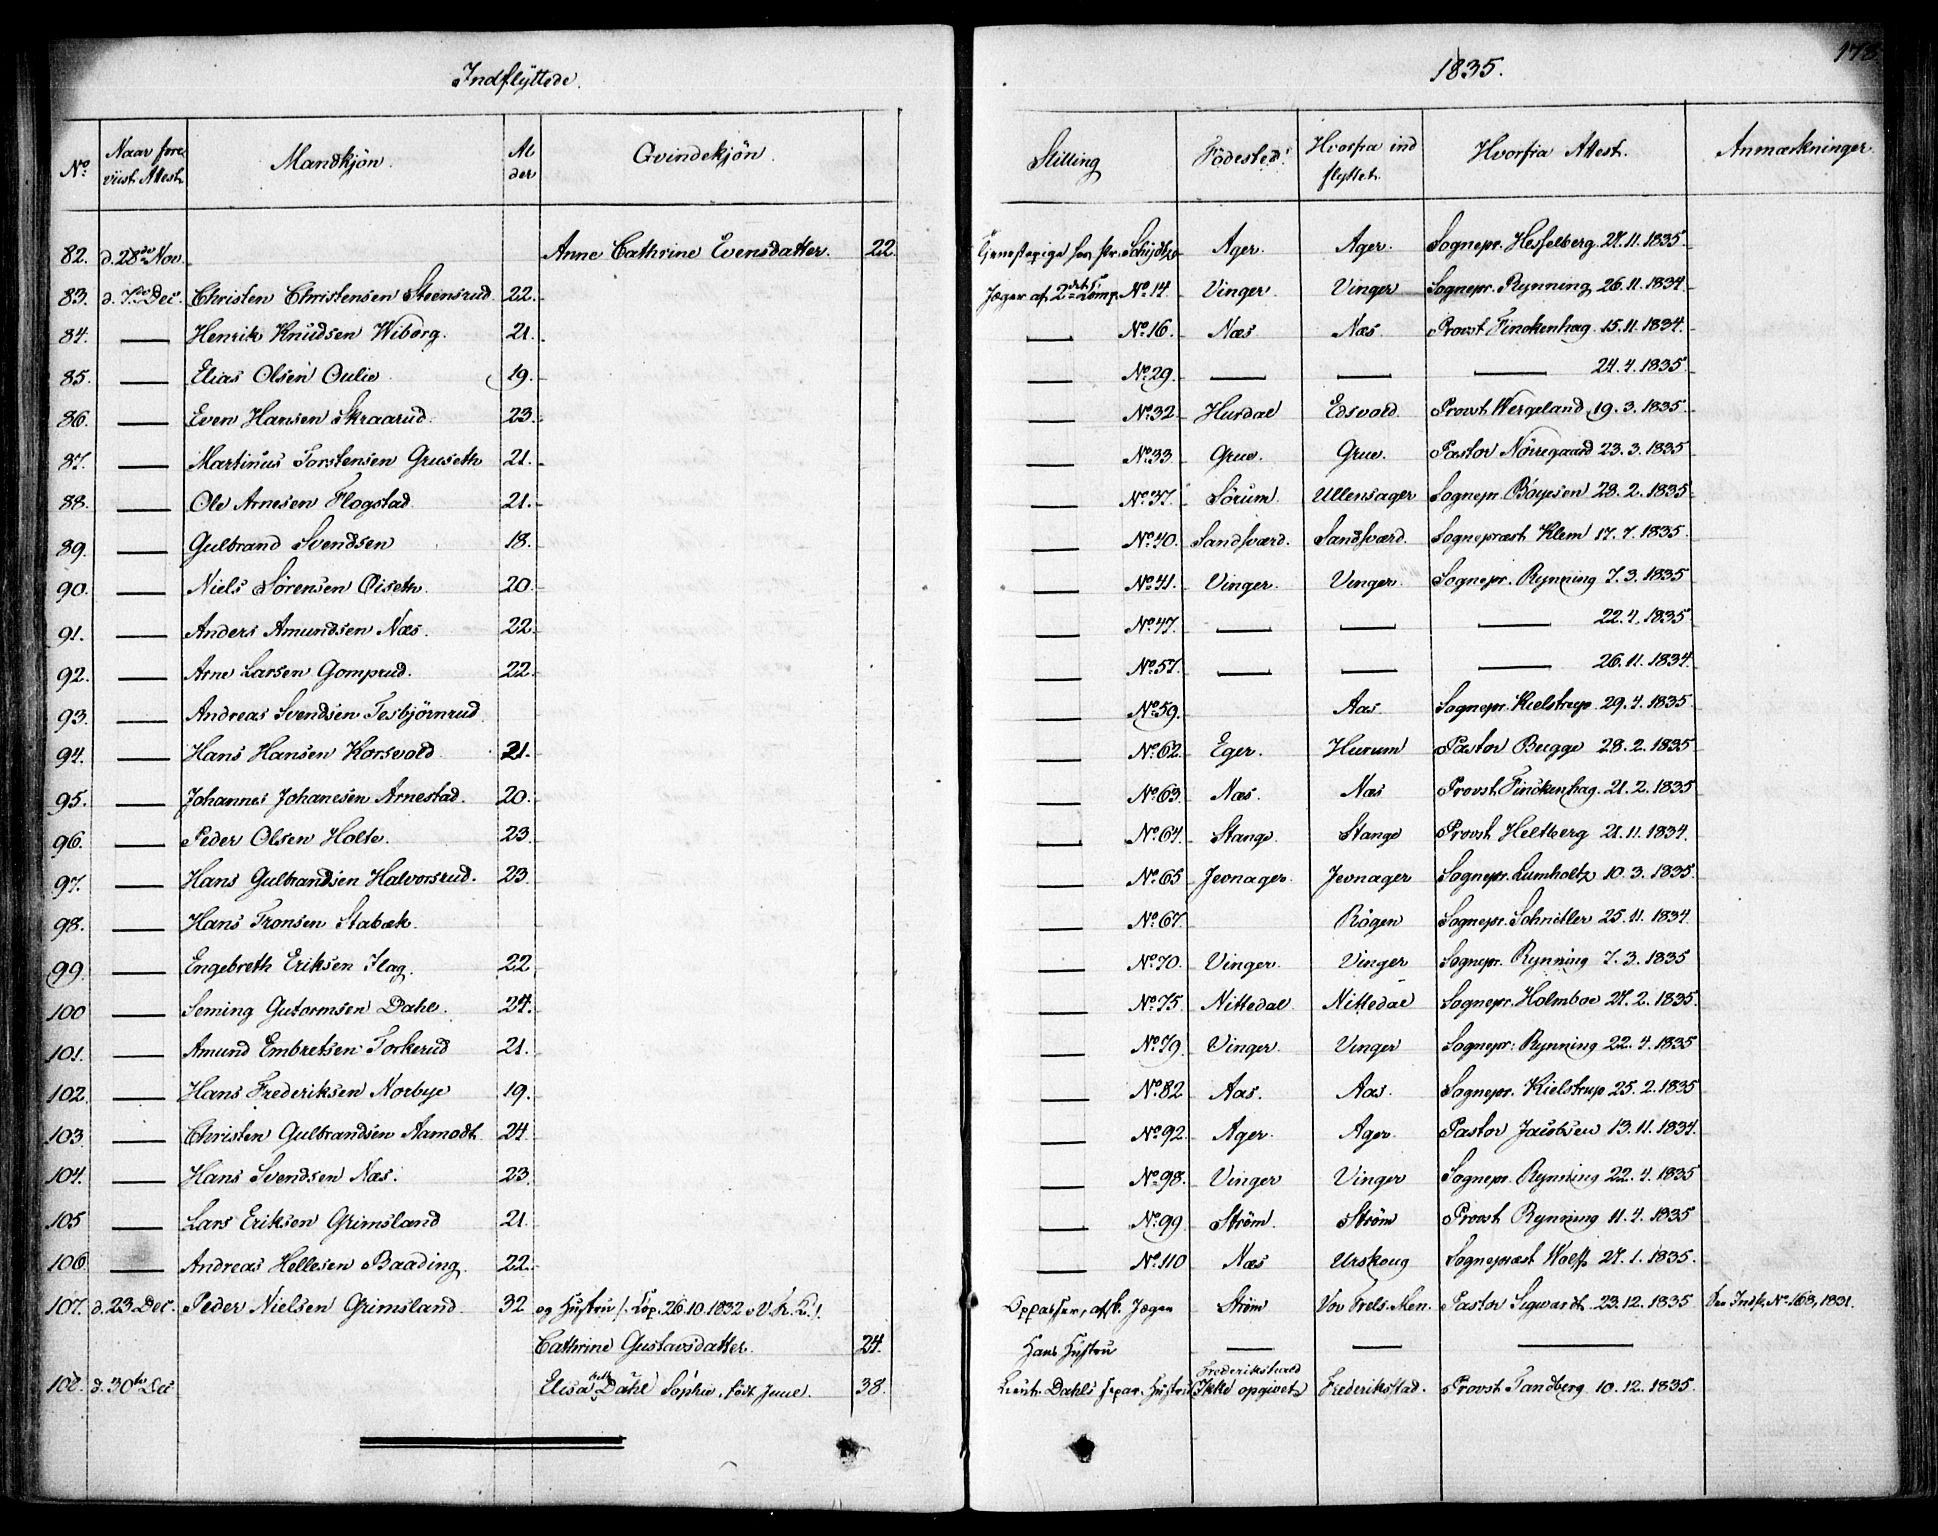 Indflÿttede. 1835. 178
No Naar fore viist Attest. Mandkjön. Al der Qvindekjön. Stilling Födested. Hvorfra ind flyttet. Hvorfra Attest. Anmærkninger.
82. d. 28de Nov. Anne Cathrine Evensdatter. 22. Tjenestepige hos Pr. Schydtz Ager. Ager. Sognepr. Hesselberg 27.11.1835.
83. d. 7de Dec. Christen Christensen Steensrud 22. Jæger af 2det Comp. No 14. Vinger. Vinger Sognepr. Rynning 26.11.1834.
84. — Henrik Knudsen Wiborg. 21. — No 16. Næs Næs. Provst Finckenhag 15.11.1834.
85. — Elias Olsen Oulie 19. — No 29. — — — 24.4.1835
86. — Even Hansen Skraarud. 23. — No 32 Hurdal Edsvold Provst Wergeland 19.3.1835.
87. — Martinus Torstensen Gruseth 21. — No 33 Grue. Grue. Pastor Nörregaard 23.3.1835
88. — Ole Arnesen Flogstad 21. — No 37. Sörum. Ullensager Sognepr. Böyesen 28.2.1835
89. — Gulbrand Svendsen 18. — No 40. Sandsværd. Sandsværd. Sognepræst Klem 17.7.1835.
90. — Niels Sörensen Öiseth. 20. — No 41. Vinger. Vinger. Sognepr. Rynning 7.3.1835
91. — Anders Amundsen Næs. 22. — No 47. — — — 22.4.1835
92. — Arne Larsen Gomprud. 22. — No 57. — — — 26.11.1834.
93. — Andreas Svendsen Tesbjörnrud — No 59. Aas. Sognepr. Kielstrup 29.4.1835
94. — Hans Hansen Korsvold 21. — No 62. Eger. Hurum Pastor Bugge 28.2.1835
95. — Johannes Johanesen Arnestad. 20. — No 63. Næs. Næs Provst Finckenhag. 21.2.1835
96. — Peder Olsen Holte. 23. — No 64. Stange. Stange Provst Heltberg 21.11.1834.
97. — Hans Gulbrandsen Halvorsrud. 23. — No 65 Jevnager. Jevnager Sognepr. Lumholtz 10.3.1835.
98. — Hans Tronsen Stabæk. — No 67. Rögen Sognepr. Schnitler 25.11.1834.
99. — Engebreth Eriksen Ilag. 22 — No 70. Vinger. Vinger Sognepr. Rynning 7.3.1835
100 — Seming Gutormsen Dahl. 24. — No 75. Nittedal Nittedal Sognepr. Holmboe 27.2.1835.
101. — Amund Embretsen Torkerud 21. — No 79. Vinger. Vinger Sognepr: Rynning 22.4.1835
102. — Hans Frederiksen Norbye 19. — No 82 Aas. Aas. Sognepr. Kielstrup 25.2.1835
103. — Christen Gulbrandsen Aamodt. 24. — No 92. Ager. Ager. Pastor Jacobsen 13.11.1834.
104. — Hans Svendsen Næs. 23. — No 98. Vinger Vinger Sognepr. Rynning 22.4.1835
105 — Lars Eriksen Grimsland 21. — No 99 Ström. Ström Provst Rynning 11.4.1835
106. — Andreas Hellesen Baading. 22. — No 110 Næs Urskoug Sognepræst Wolff 27.1.1835.
107. d. 23 Dec. Peder Nielsen Grimsland. 32 og Hustru /. Cop. 26.10.1832 Oppasser, afsk. Jæger Ström Vor Frels. Men. Pastor Sigwardt 23.12.1835 See Indfl. No 163, 1831.
Cathrine Gustavsdatter. 24. Hans Hustru — — —
108. d. 30te Dec Elisabeth Dahl Sophie, födt Juul. 38. Lieut. Dahls separ. Hustru Frederikshald Ikke opgivet Frederikstad. Provst Tandberg 10.12.1835.